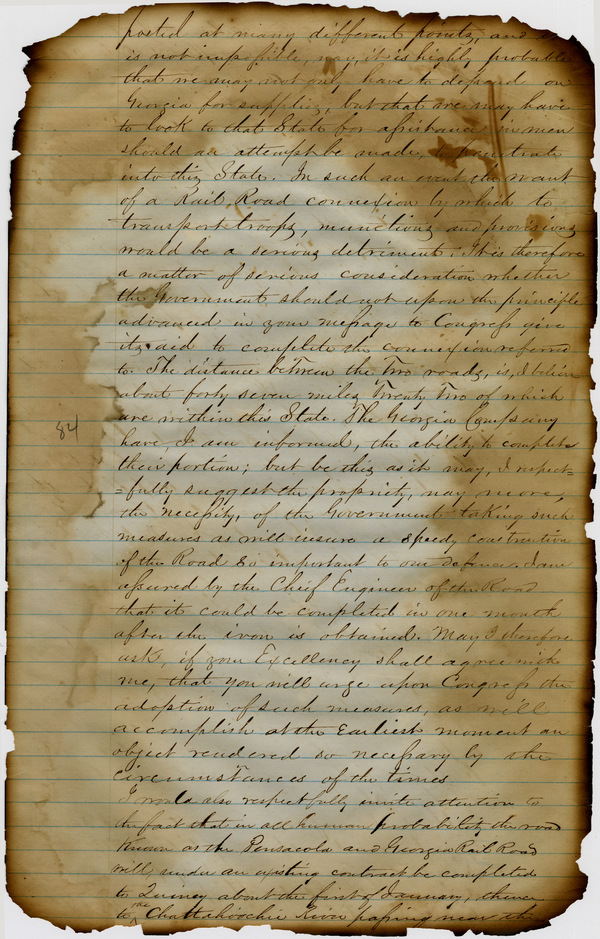 posted at many different points, and
is not impossible, nay, it is highly probable
that we may not only have to depend on
Georgia for supplies, but that we may have
to look to that State for assistance in men
should an attempt be made, to penetrate
into this State. In such an event the want
of a Rail Road connexion by which to
transport troops, munitions and provisions
would be a serious detriment. It is therefore
a matter of serious consideration whether
the Government should not upon the principle
advanced in your message to Congress give
its aid to complete the connexion referred
to. The distance between the two roads, is, I believe
about forty seven miles Twenty Two of which
are within this State. The Georgia Company
have I am informed, the ability to complete
their portion; but be this as it may, I respect=
=fully suggest the propriety, nay more,
the necessity, of the Government taking such
measures as will insure a speedy construction
of the Road so important to our defence. I am
assured by the Chief Engineer of the Road
that it could be completed in one month
after the iron is obtained. May I therefore
ask, if your Excellency shall agree with
me, that you will urge upon Congress the
adoption of such measures, as will
accomplish at the Earliest moment an
object rendered so necessary by the
circumstances of the times
I would also respectfully invite attention to
the fact that in all human probability the road
Known as the Pensacola and Georgia Rail Road
will under an existing contract be completed
to Quincy about the first of January, thence
to the Chattahoochie River passing near the
84